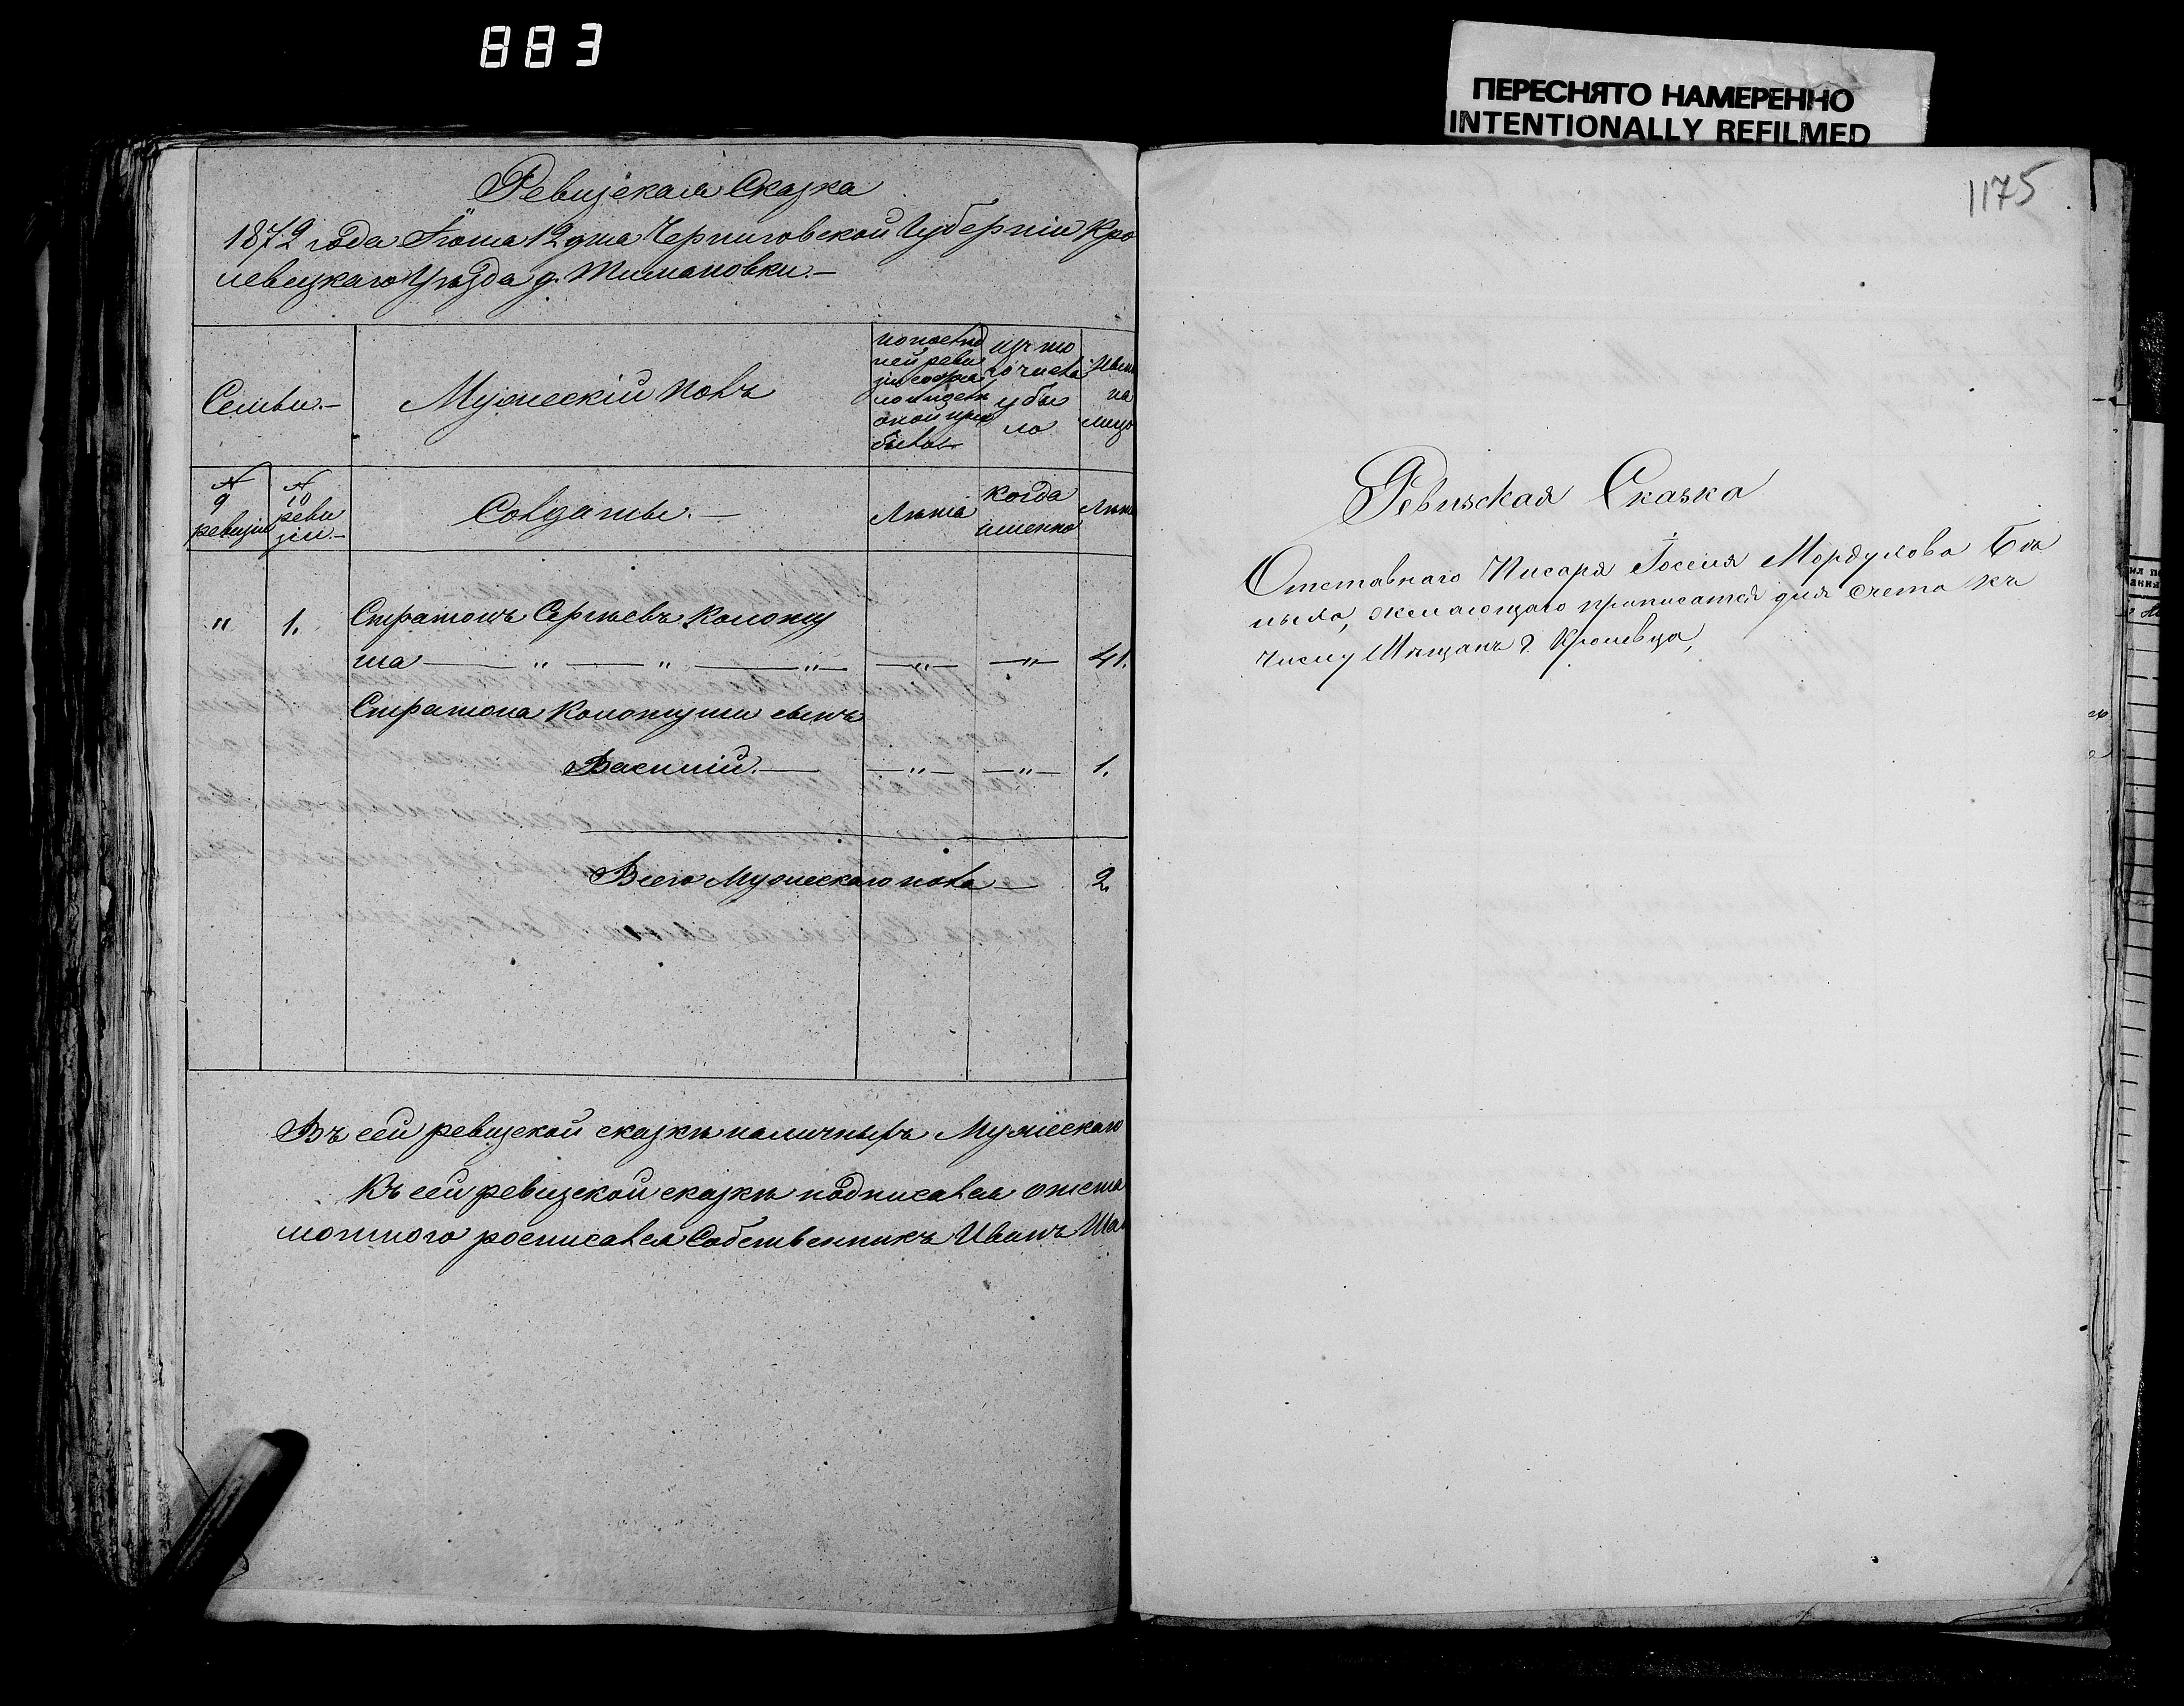 883
ПЕРЕСНЯТО НАМЕРЕННО
INTENTIONALLY REFILMED
Ревизская Сказка
1872 года Іюня 12 дня Черниговской Губерніи Кро
левецкаго Уѣзда д.
Семьи.— Мужескій полъ
по послѣд
ней реви
зіи состоя
ло и послѣ
оной при
было
изъ то
го числа
убы
ло
Нынѣ
на
лицо
№ 9 ревизіи
№ 10 реви
зіи.—
Солдаты.—
Лѣта
когда
именно
Лѣта
" 1. Стратонъ Сергѣевъ Колоту
ша — " — " — " — " — " — 41.
Стратона Колотуши сынъ
Василій. — " — " — 1.
Всего Мужескаго пола — 2.
Въ сей ревизской сказкѣ наличныхъ Мужескаго
Къ сей ревизской сказкѣ подписался отста
мотного росписался Собственникъ Иванъ Ша
1175
Ревизская Сказка
Отставнаго Писаря Іоселя Мордухова
желающаго приписатся для счета къ
числу Мѣщанъ г. Кролевца,